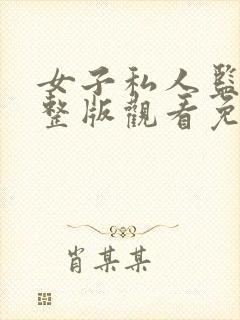 女子私人監
整版觀看免
肖某某